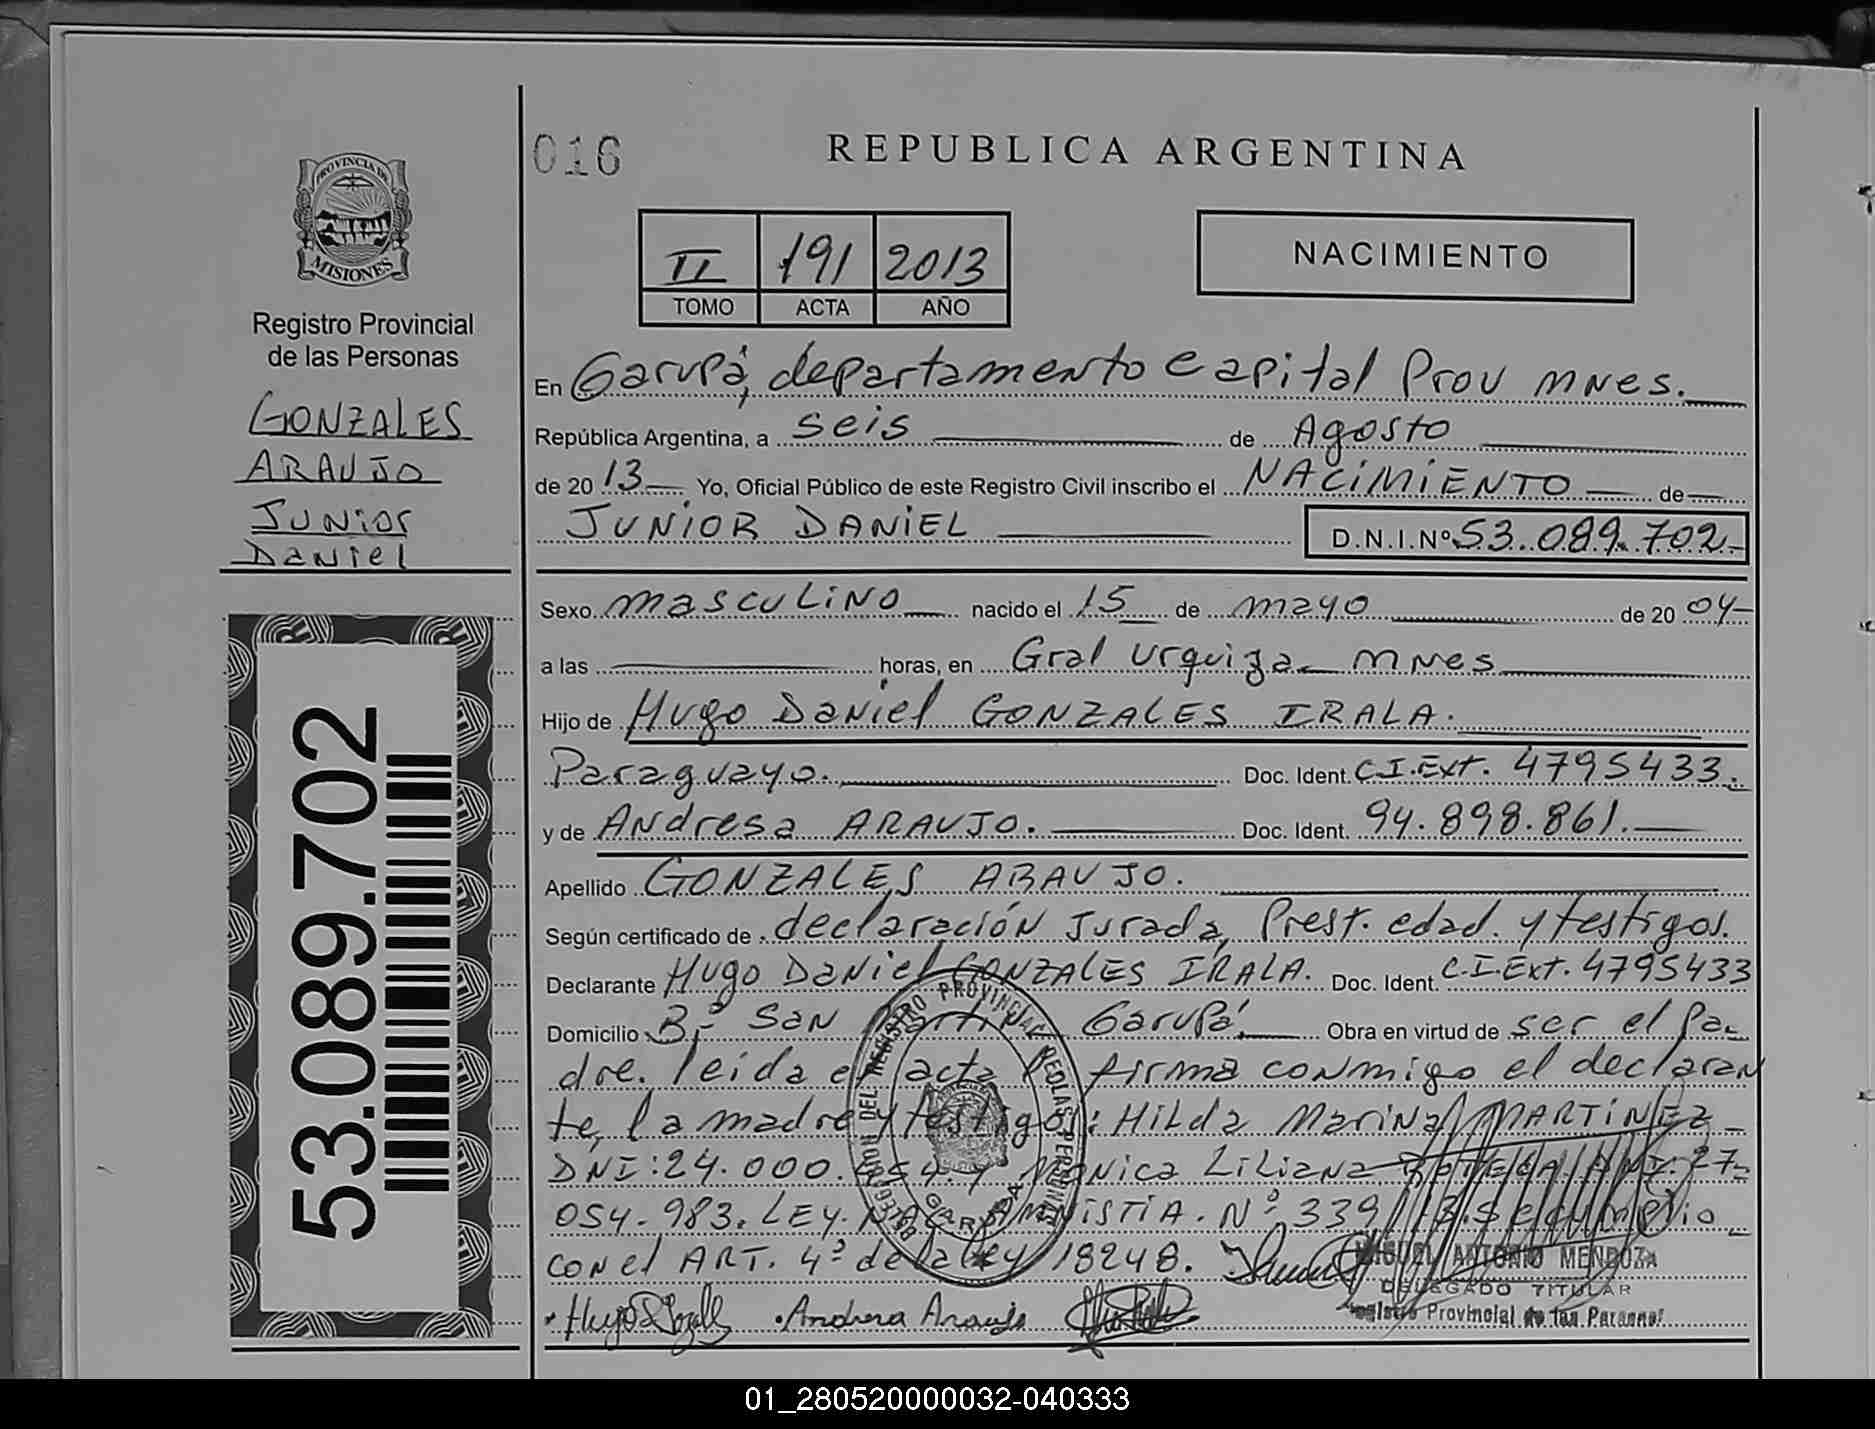 016
REPUBLICA ARGENTINA
PROVINCIA DE
MISIONES
Registro Provincial
de las Personas
GONZALES
ARAUJO
JUNIOR
Daniel
53.089.702
II 191 2013
TOMO ACTA AÑO
NACIMIENTO
En Garupá, departamento Capital Prov mnes.
República Argentina, a seis de Agosto
de 2013 Yo, Oficial Público de este Registro Civil inscribo el NACIMIENTO de
JUNIOR DANIEL D.N.I.Nº 53.089.702
Sexo masculino nacido el 15 de mayo de 2004
a las horas, en Gral Urquiza mnes
Hijo de Hugo Daniel GONZALES IRALA.
Paraguayo. Doc. Ident. C.I.Ext. 4795433.
y de Andresa ARAUJO. Doc. Ident. 94.898.861.
Apellido GONZALES ARAUJO.
Según certificado de declaración Jurada, Prest. edad. y testigos.
Declarante Hugo Daniel GONZALES IRALA. Doc. Ident. C.I.Ext. 4795433
Domicilio Bº San Garupá. Obra en virtud de ser el Pa-
dre. leida el acta firma conmigo el declaran
te, la madre y testigos: Hilda Marina MARTINEZ
DNI: 24.000. y Monica Liliana 27-
054-983. LEY. AMNISTIA. Nº 339/13. Se cumplio
con el ART. 4º de la ley 18248.
Andresa Araujo
DELEGACION DEL REGISTRO PROVINCIAL DE LAS PERSONAS
GARUPA
MIGUEL ANTONIO MENDOZA
DELEGADO TITULAR
Registro Provincial de las Personas
01_280520000032-040333